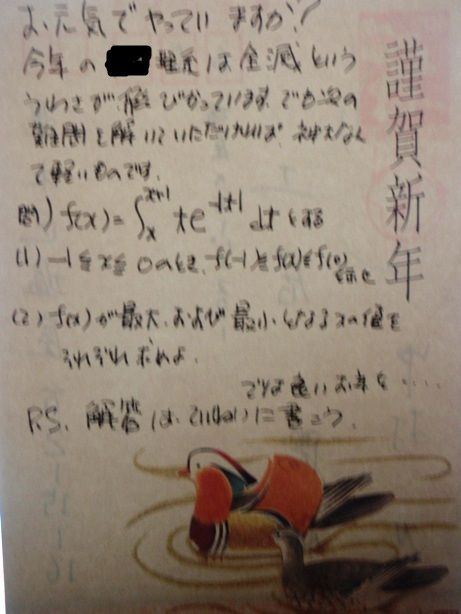 お元気でやっていますか?
今年の 理系は全滅という
うわさが飛びかっています。でも次の
難問を解いていただければ、神大なん
て軽いものです。
問) f(x)=∫_x^{x+1} te^{-|t|} dt とする
(1) -1≦x≦0のとき、f(-1)≦f(x)≦f(0)を示せ
(2) f(x)が最大、および最小となるxの値を
それぞれ求めよ。
では良いお年を・・・・
P.S. 解答は、ていねいに書こう。
謹賀新年